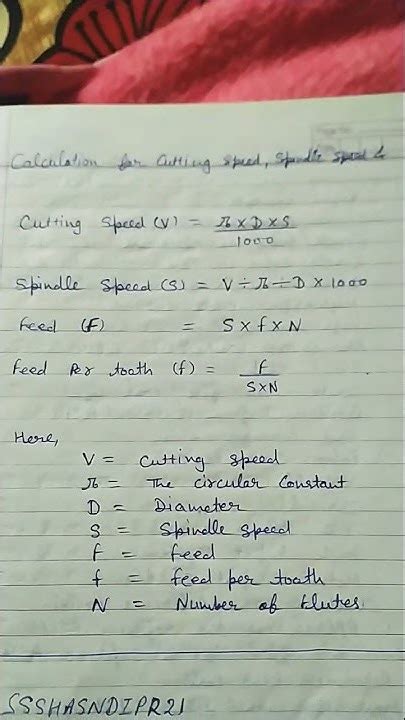 Calculation for Cutting speed, Spindle speed &
Cutting Speed (V) = π × D × S / 1000
Spindle Speed (S) = V ÷ π ÷ D × 1000
Feed (F) = S × f × N
Feed Per tooth (f) = F / S×N
Here,
V = Cutting speed
π = The circular constant
D = Diameter
S = Spindle speed
F = Feed
f = feed per tooth
N = Number of flutes
SSSHASNDIPR21